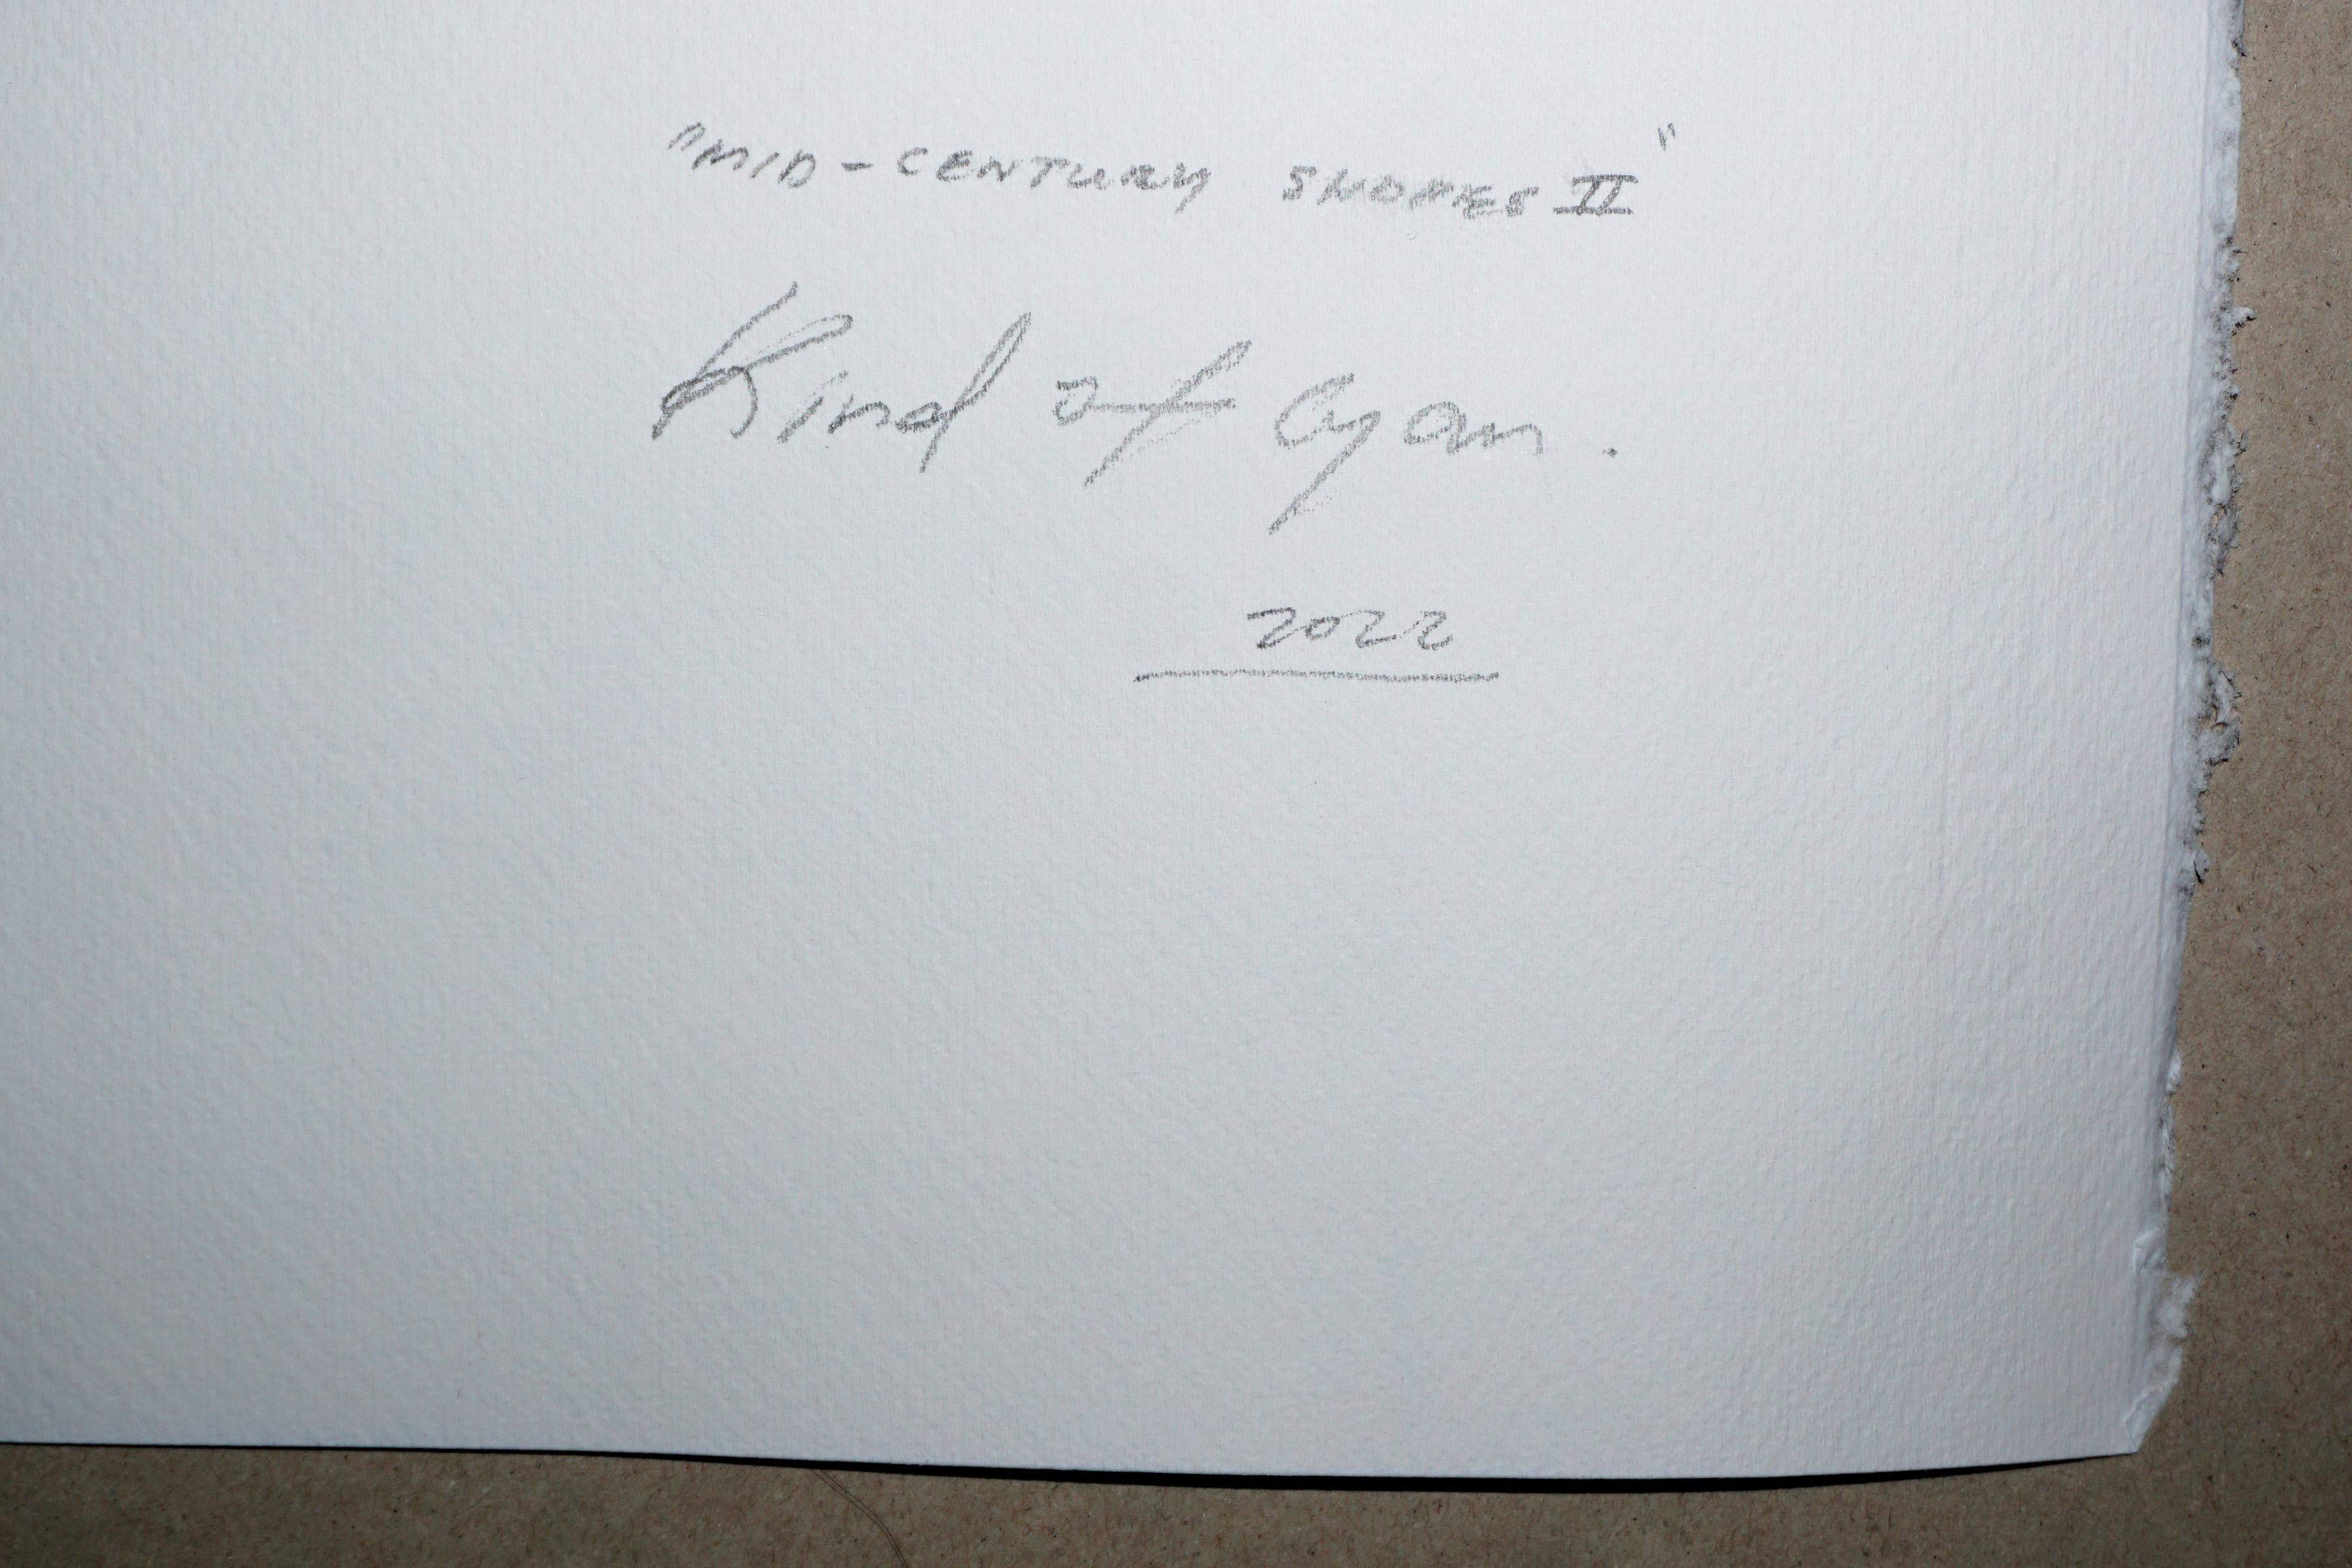 "MID-CENTURY SHAPES II"
Kind of Cyan.
2022